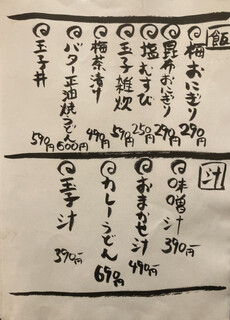 飯
梅おにぎり 290円
昆布おにぎり 290円
塩むすび 250円
玉子雑炊 590円
梅茶漬け 490円
バター正油焼うどん 600円
玉子丼 590円
汁
味噌汁 390円
おまかせ汁 490円
カレーうどん 690円
玉子汁 390円